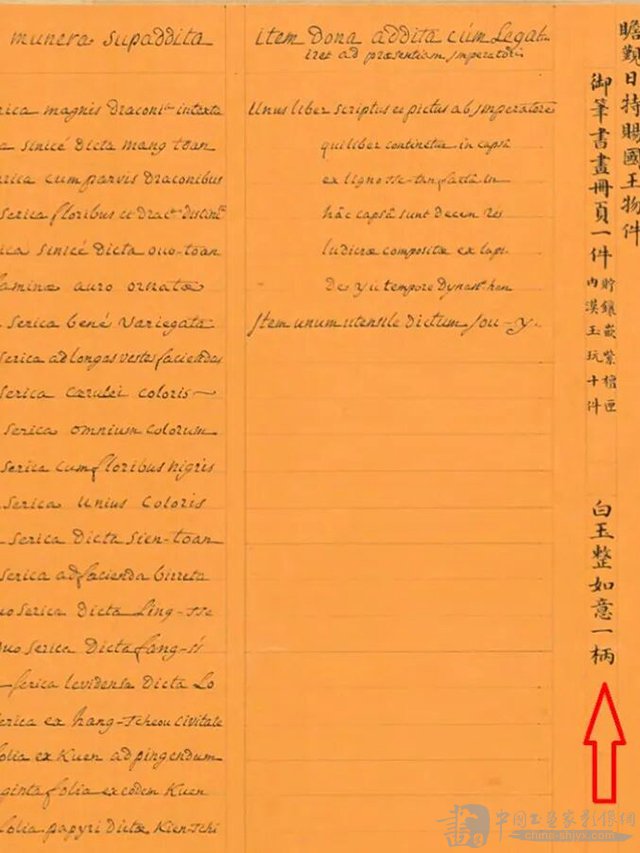 munera supaddita
erica magnis Draconib intexta
a sinicé Dicta mang toan
erica cum parvis Draconibus
serica floribus et Drac distinct
a sinicé Dicta ouo-toan
laminæ auro ornatæ
a serica bené variegata
serica ad longas vestes faciendas
serica cærulei coloris
serica omnium colorum
serica cum floribus nigris
serica unius coloris
serica Dicta sien-toan
serica ad facienda birreta
uo serica Dicta Ling-sse
uo serica Dicta fang-si
serica levidensa Dicta Lo
erica ex hang-tcheou civitate
folia ex Kuen ad pingendum
ginta folia ex codem Kuen
folia papyri dictæ Kien-tchi
item Dona addita cúm Legat
iret ad præsentiam imperatoris
Unus liber scriptus et pictus ab imperatore
qui liber continetur in capsâ
ex ligno tse-tan facta in
hâc capsâ sunt decem res
ludicræ compositæ ex lapi
De yu tempore Dynast han
Item unum utensile dictum jou-y.
瞻覲日持賜國王物件
御筆書畫冊頁一件
貯鑲嵌紫檀匣
內漢玉玩十件
白玉整如意一柄
中国工艺家影像网
china-shjyx.com